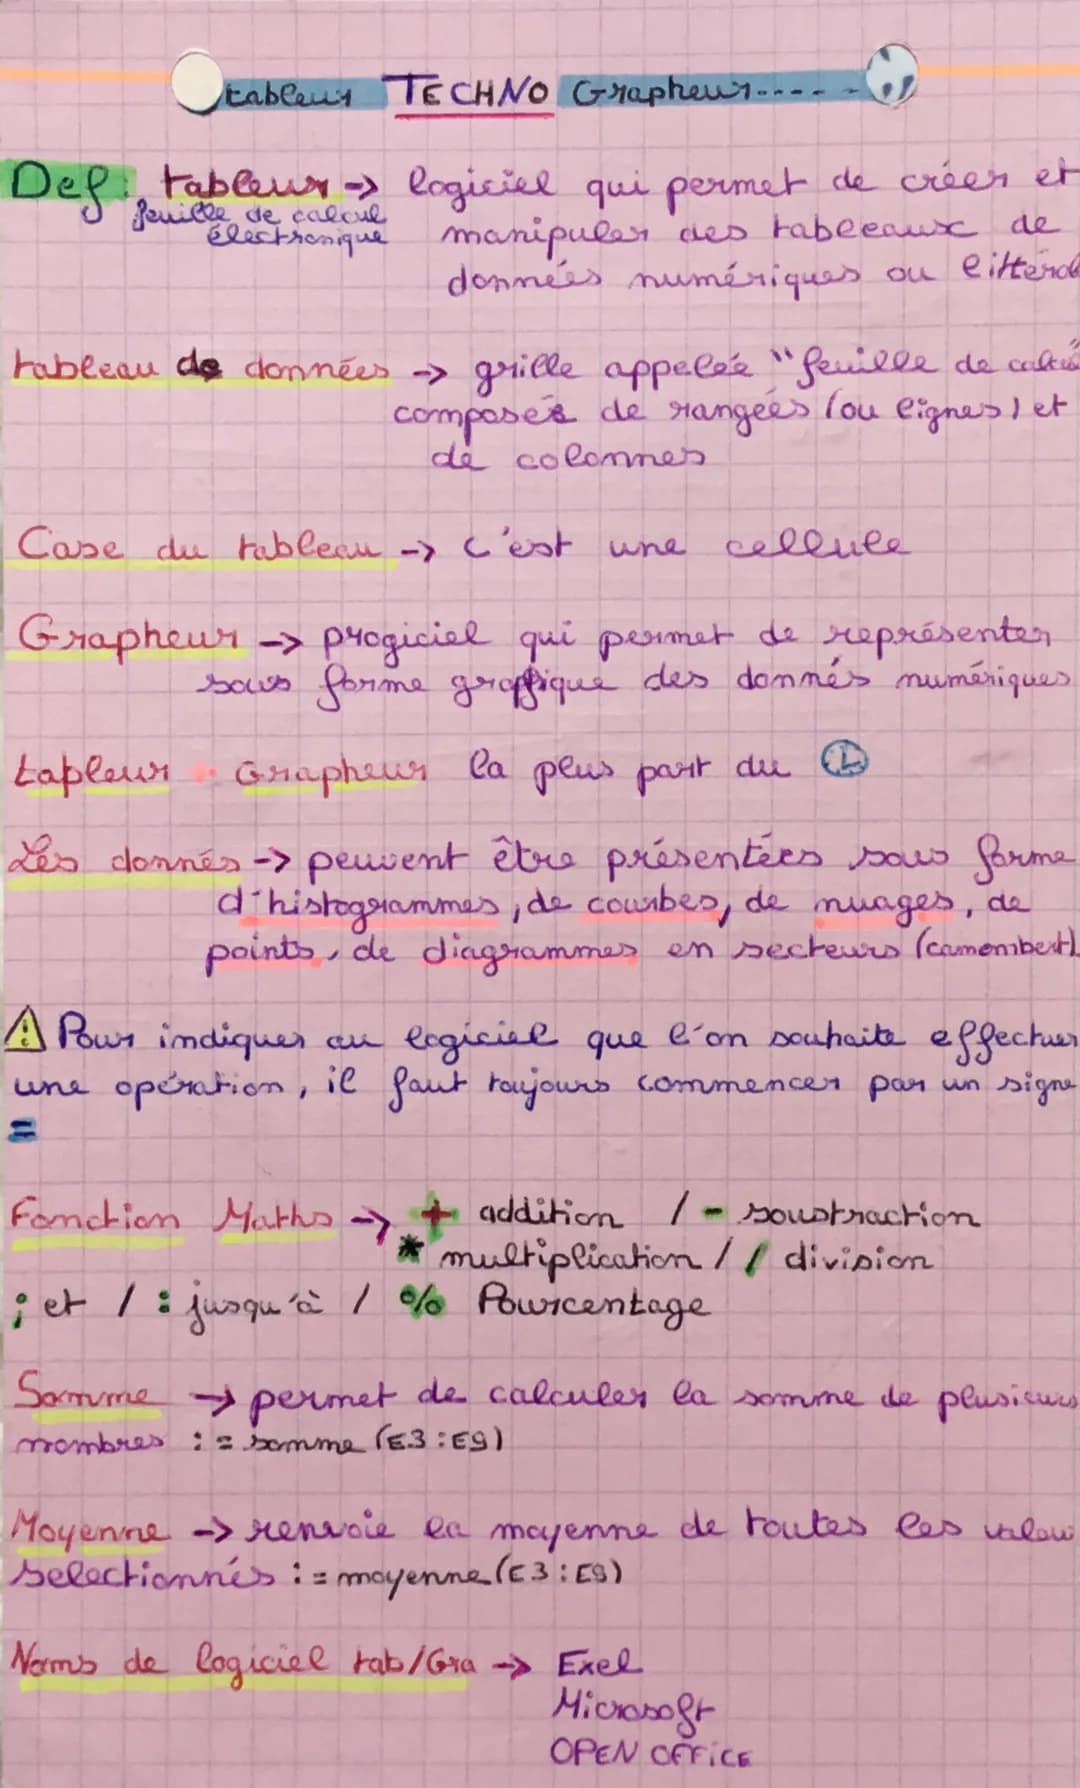 tableur TECHNO Grapheur-----
Def: tableur -> logiciel qui permet de créer et
feuille de calcul manipuler des tableaux de
électronique données numériques ou littéral
tableau de données -> grille appelée "feuille de calcul
composés de rangées (ou lignes) et
de colonnes
Case du tableau -> c'est une cellule
Grapheur -> progiciel qui permet de représenter
sous forme graffique des donnés numériques
tapleur Grapheur la plus part du
Les donnés -> peuvent être présentées sous forme
d'histogrammes, de courbes, de nuages, de
points, de diagrammes en secteurs (camembert)
Pour indiquer au logiciel que l'on souhaite effectuer
une opération, il faut toujours commencer par un signe
=
Fonction Maths -> + addition / - soustraction
* multiplication / / division
; et / : jusqu'à / % Pourcentage
Somme -> permet de calculer la somme de plusieurs
nombres : = somme (E3:E9)
Moyenne -> renvoie la moyenne de toutes les valeu
selectionnés : = moyenne (E3:E9)
Noms de logiciel tab/Gra -> Exel
Microsoft
OPEN OFFiCE